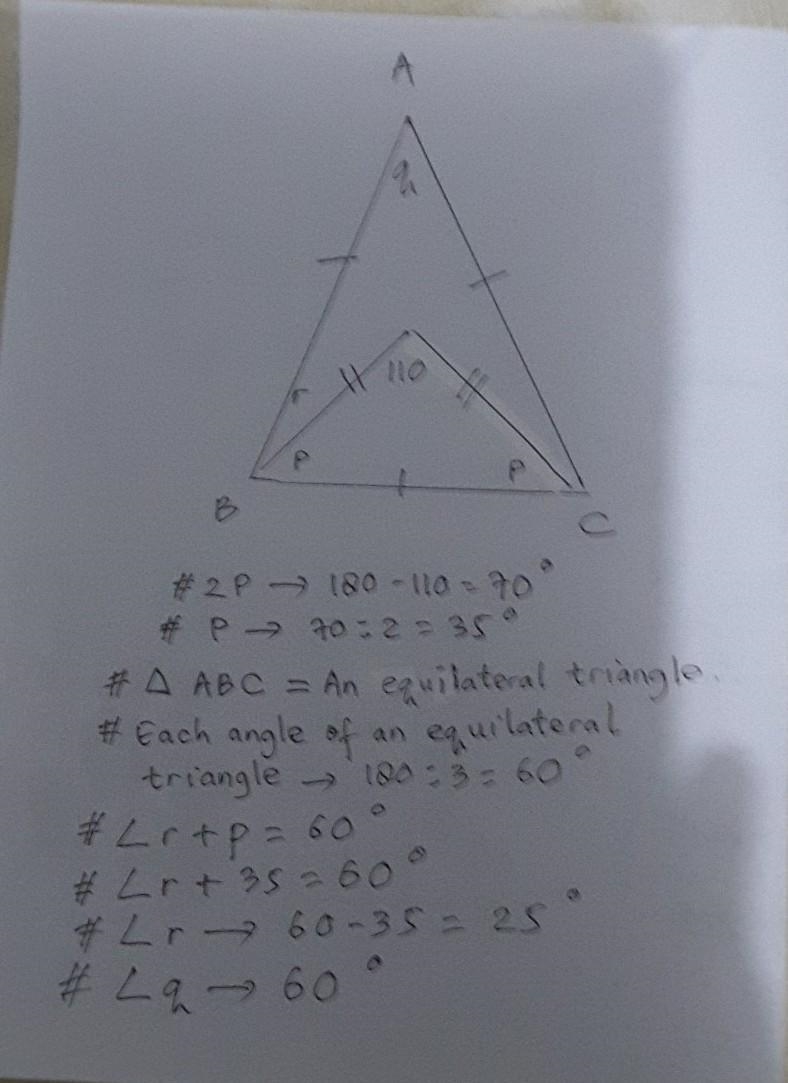 A
q
110
r
P
P
B
C
# 2P → 180 - 110 = 70°
# P → 70 : 2 = 35°
# △ ABC = An equilateral triangle.
# Each angle of an equilateral
triangle → 180 : 3 = 60°
# ∠r + p = 60°
# ∠r + 35 = 60°
# ∠r → 60 - 35 = 25°
# ∠q → 60°